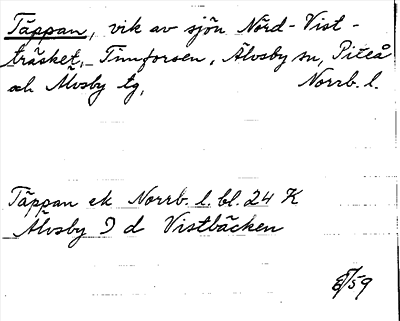 Täppan, vik av sjön Nörd-Vist-
träsket, Timforsen, Älvsby sn, Piteå
och Älvsby tg, Norrb. l.
Täppan ek Norrb. l. bl. 24 K
Älvsby 9 d Vistbäcken
/59